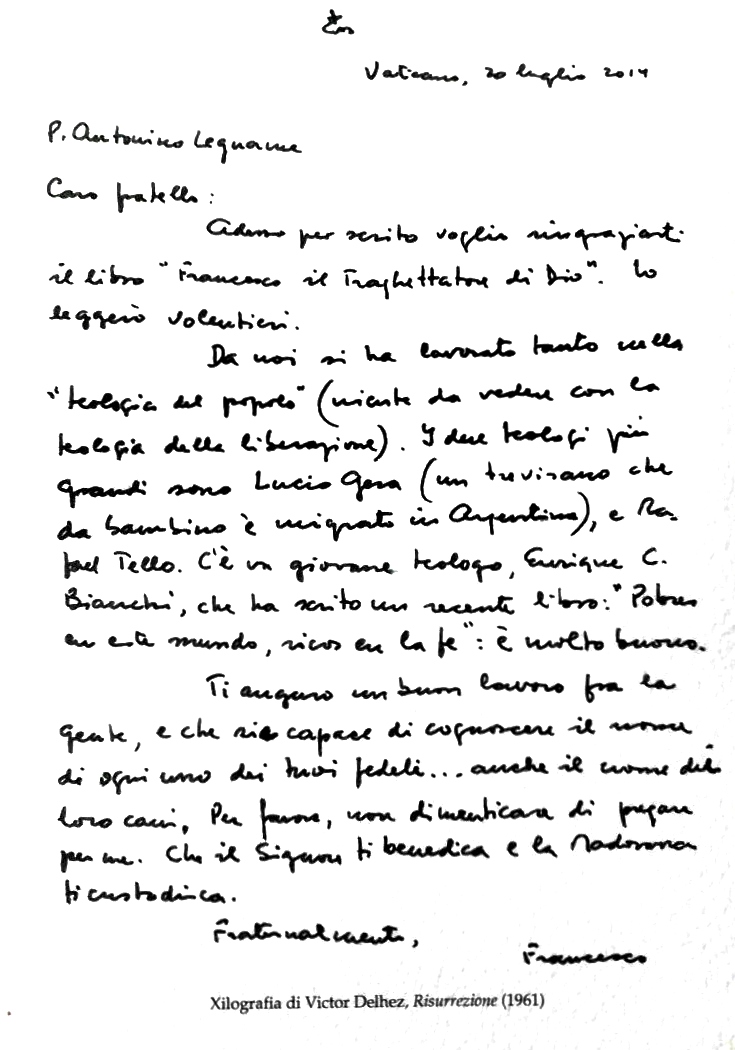 Vaticano, 20 luglio 2014
P. Antonino Legname
Caro fratello:
Adesso per scrito voglio ringraziarti
il libro "Francesco il Traghettatore di Dio". Lo
leggerò volentieri.
Da noi si ha lavorato tanto nella
"teologia del popolo" (niente da vedere con la
teologia della liberazione). I due teologi più
grandi sono Lucio Gera (un trevisano che
da bambino è migrato in Argentina), e Ra-
fael Tello. C'è un giovane teologo, Enrique C.
Bianchi, che ha scrito un recente libro: "Pobres
en este mundo, ricos en la fe": è molto buono.
Ti auguro un buon lavoro fra la
gente, e che sia capace di cognoscere il nome
di ogni uno dei tuoi fedeli... anche il nome dei
loro cani. Per favore, non dimenticare di pregare
per me. Che il Signore ti benedica e la Madonna
ti custodisca.
Fraternalmente,
Francesco
Xilografia di Victor Delhez, Risurrezione (1961)